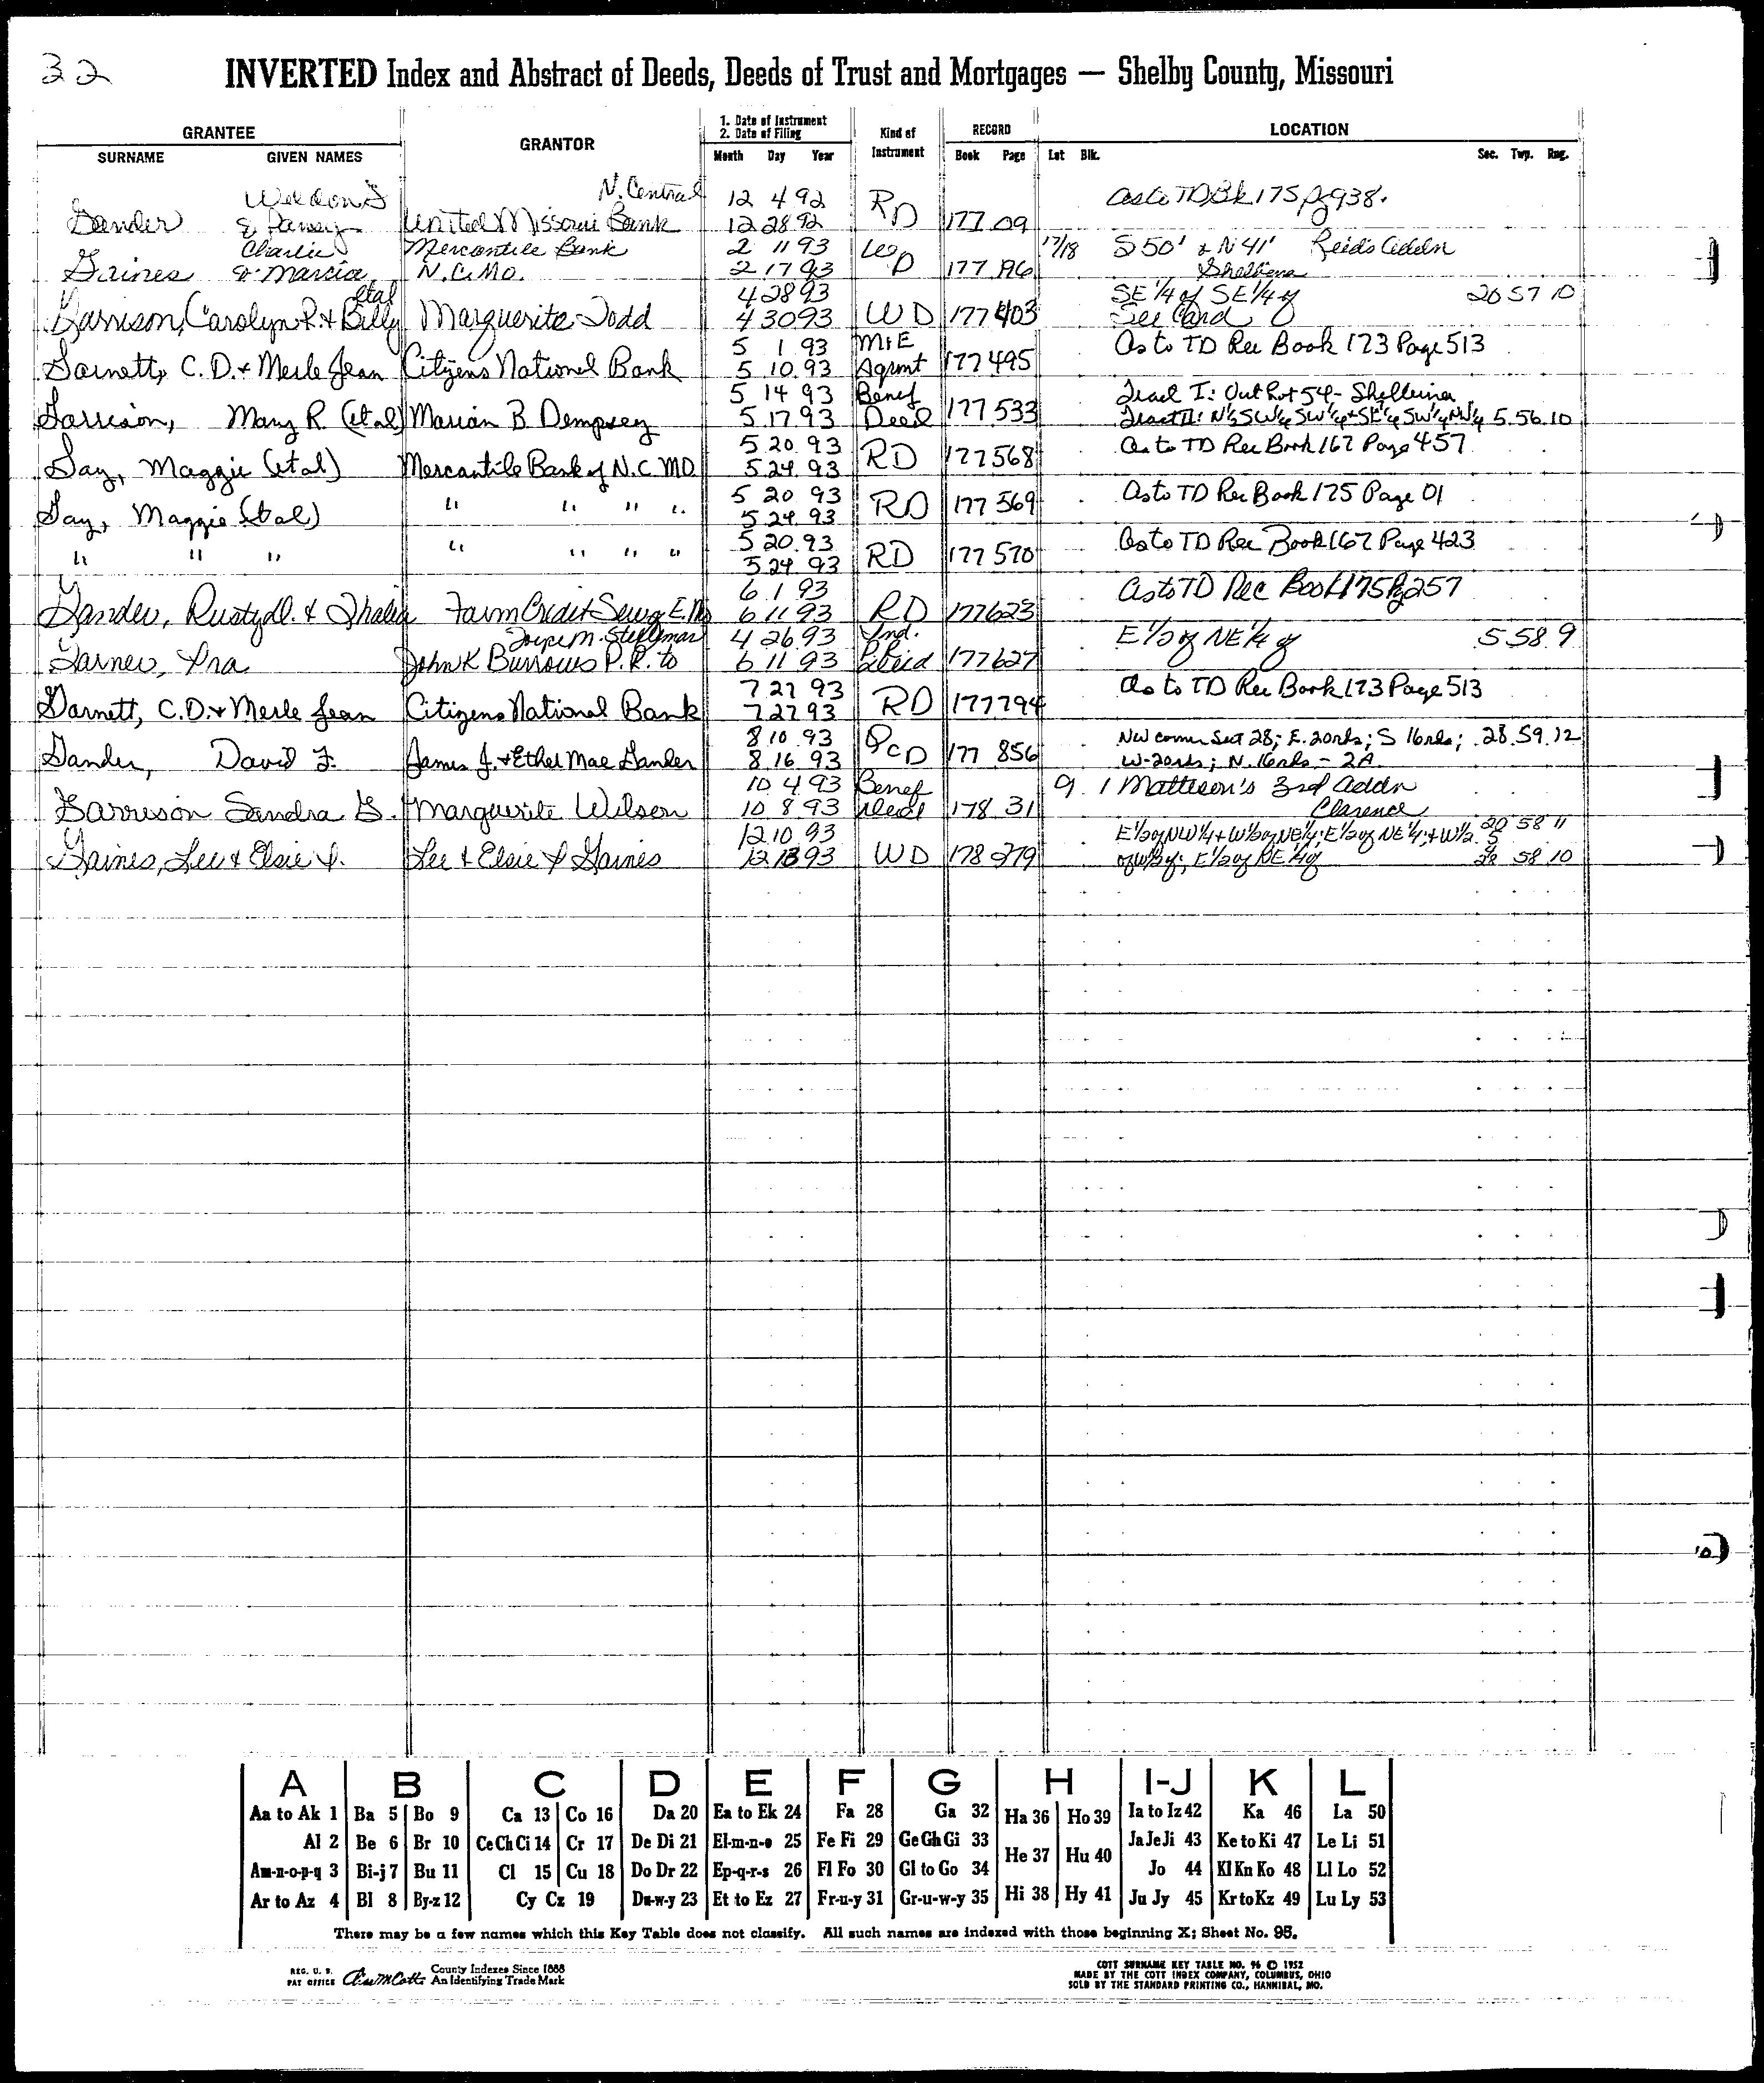 32
INVERTED Index and Abstract of Deeds, Deeds of Trust and Mortgages — Shelby County, Missouri
GRANTEE GRANTOR 1. Date of Instrument 2. Date of Filing Kind of Instrument RECORD LOCATION
SURNAME GIVEN NAMES Month Day Year Book Page Lot Blk. Sec. Twp. Rng.
Weldon N. Central 12 4 92 As to TD Bk 175 Pg 938.
Gander & United Missouri Bank 12 28 92 RD 177 09
Charlie Mercantile Bank 2 11 93 17/18 S 50' & N 41' Reid's Addn
Gaines & Marcia N.C. Mo. 2 17 93 WD 177 196 Shelbina
etal 4 28 93 SE 1/4 of SE 1/4 of 20 57 10
Garrison, Carolyn R. & Billy Marguerite Todd 4 30 93 WD 177 403 See Card
5 1 93 M&E As to TD Rec Book 173 Page 513
Garnett, C.D. & Merle Jean Citizens National Bank 5 10 93 Agrmt 177 495
5 14 93 Benef Tract I: Out Lot 54 - Shelbina
Garrison, Mary R. (et al) Marian B Dempsey 5 17 93 Deed 177 533 Tract II: N½ SW¼ SW¼ + SE¼ SW¼ NW¼ 5 56 10
5 20 93 As to TD Rec Book 167 Page 457
Gay, Maggie (et al) Mercantile Bank of N.C. MO 5 24 93 RD 177 568
5 20 93 As to TD Rec Book 175 Page 01
Gay, Maggie (et al) " " " " 5 24 93 RD 177 569
5 20 93 As to TD Rec Book 167 Page 423
" " " " " " " 5 24 93 RD 177 570
6 1 93 As to TD Rec Book 175 Pg 257
Gander, Rusty & Farm Credit E. Mo 6 11 93 RD 177 623
Joyce M. 4 26 93 Ind. E 1/2 of NE 1/4 of 5 58 9
Garner, Ira John K Burrows P.R. to 6 11 93 Deed 177 627
7 27 93 As to TD Rec Book 173 Page 513
Garnett, C.D. & Merle Jean Citizens National Bank 7 27 93 RD 177 794
8 10 93 NW corner Sect 28; E. 20rds; S 16rds; 28 59 12
Gander, David F. James J. & Ethel Mae Gander 8 16 93 QCD 177 856 W-20rds; N. 16rds - 2A
10 4 93 Benef 9 1 Matteson's 3rd Addn
Garrison Sandra G. Marguerite Wilson 10 8 93 Deed 178 31 Clarence
12 10 93 E 1/2 of NW 1/4 + W 1/2 of NE 1/4; E 1/2 of NE 1/4; + W 1/2 20 58 11
Gaines, Lee & Elsie Lee & Elsie Gaines 12 13 93 WD 178 279 E 1/2 of NE 1/4 of 58 10
A B C D E F G H I-J K L
Aa to Ak 1 Ba 5 Bo 9 Ca 13 Co 16 Da 20 Ea to Ek 24 Fa 28 Ga 32 Ha 36 Ho 39 Ia to Iz 42 Ka 46 La 50
Al 2 Be 6 Br 10 Ce Ch Ci 14 Cr 17 De Di 21 El-m-n-o 25 Fe Fi 29 Ge Gh Gi 33 He 37 Hu 40 Ja Je Ji 43 Ke to Ki 47 Le Li 51
Am-n-o-p-q 3 Bi-j 7 Bu 11 Cl 15 Cu 18 Do Dr 22 Ep-q-r-s 26 Fl Fo 30 Gl to Go 34 Jo 44 Kl Kn Ko 48 Ll Lo 52
Ar to Az 4 Bl 8 By-z 12 Cy Cz 19 Du-w-y 23 Et to Ez 27 Fr-u-y 31 Gr-u-w-y 35 Hi 38 Hy 41 Ju Jy 45 Kr to Kz 49 Lu Ly 53
There may be a few names which this Key Table does not classify. All such names are indexed with those beginning X; Sheet No. 95.
REG. U. S. PAT OFFICE County Indexes Since 1888 An Identifying Trade Mark
COTT SURNAME KEY TABLE NO. 96 © 1952
MADE BY THE COTT INDEX COMPANY, COLUMBUS, OHIO
SOLD BY THE STANDARD PRINTING CO., HANNIBAL, MO.